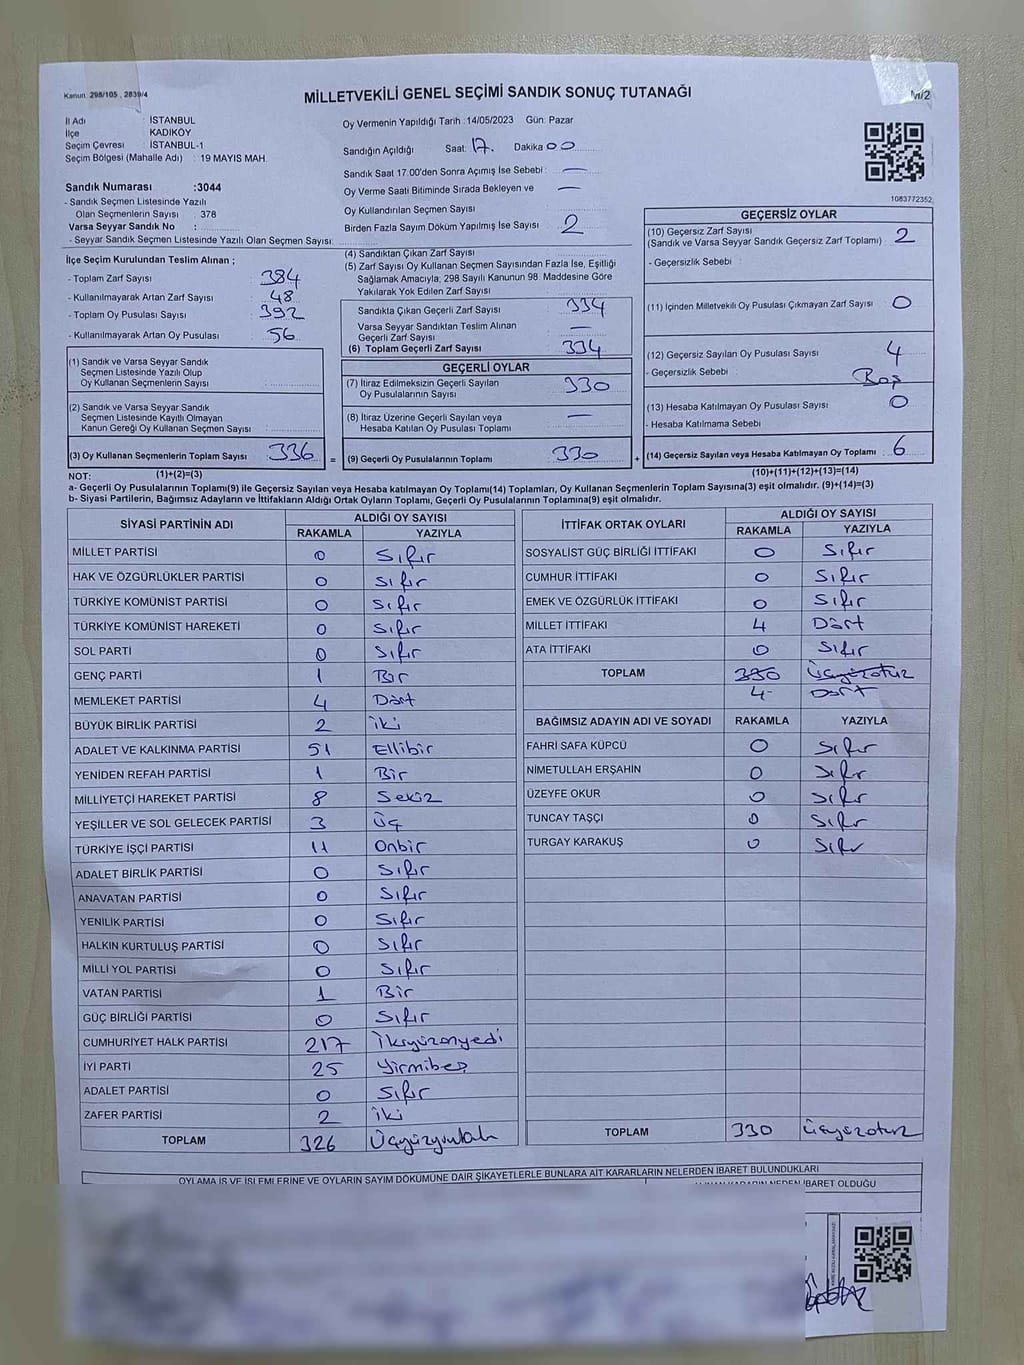 Kanun: 298/105 , 2839/4
MİLLETVEKİLİ GENEL SEÇİMİ SANDIK SONUÇ TUTANAĞI
M/2
İl Adı : İSTANBUL
İlçe : KADIKÖY
Seçim Çevresi : İSTANBUL-1
Seçim Bölgesi (Mahalle Adı) : 19 MAYIS MAH.
Sandık Numarası :3044
- Sandık Seçmen Listesinde Yazılı
Olan Seçmenlerin Sayısı : 378
Varsa Seyyar Sandık No :
- Seyyar Sandık Seçmen Listesinde Yazılı Olan Seçmen Sayısı:
Oy Vermenin Yapıldığı Tarih :14/05/2023 Gün: Pazar
Sandığın Açıldığı Saat: 17. Dakika 00
Sandık Saat 17.00'den Sonra Açımış İse Sebebi : —
Oy Verme Saati Bitiminde Sırada Bekleyen ve —
Oy Kullandırılan Seçmen Sayısı
Birden Fazla Sayım Döküm Yapılmış İse Sayısı : 2
1083772352
İlçe Seçim Kurulundan Teslim Alınan ;
- Toplam Zarf Sayısı : 384
- Kullanılmayarak Artan Zarf Sayısı : 48
- Toplam Oy Pusulası Sayısı : 392
- Kullanılmayarak Artan Oy Pusulası : 56
(1) Sandık ve Varsa Seyyar Sandık
Seçmen Listesinde Yazılı Olup
Oy Kullanan Seçmenlerin Sayısı :
(2) Sandık ve Varsa Seyyar Sandık
Seçmen Listesinde Kayıtlı Olmayan
Kanun Gereği Oy Kullanan Seçmen Sayısı :
(3) Oy Kullanan Seçmenlerin Toplam Sayısı : 336
(4) Sandıktan Çıkan Zarf Sayısı :
(5) Zarf Sayısı Oy Kullanan Seçmen Sayısından Fazla İse, Eşitliği
Sağlamak Amacıyla, 298 Sayılı Kanunun 98. Maddesine Göre
Yakılarak Yok Edilen Zarf Sayısı :
Sandıkta Çıkan Geçerli Zarf Sayısı : 334
Varsa Seyyar Sandıktan Teslim Alınan
Geçerli Zarf Sayısı : —
(6) Toplam Geçerli Zarf Sayısı : 334
GEÇERLİ OYLAR
(7) İtiraz Edilmeksizin Geçerli Sayılan
Oy Pusulalarının Sayısı : 330
(8) İtiraz Üzerine Geçerli Sayılan veya
Hesaba Katılan Oy Pusulası Toplamı : —
= (9) Geçerli Oy Pusulalarının Toplamı : 330
GEÇERSİZ OYLAR
(10) Geçersiz Zarf Sayısı
(Sandık ve Varsa Seyyar Sandık Geçersiz Zarf Toplamı) : 2
- Geçersizlik Sebebi :
(11) İçinden Milletvekili Oy Pusulası Çıkmayan Zarf Sayısı : 0
(12) Geçersiz Sayılan Oy Pusulası Sayısı : 4
- Geçersizlik Sebebi : Boş
(13) Hesaba Katılmayan Oy Pusulası Sayısı : 0
- Hesaba Katılmama Sebebi :
+ (14) Geçersiz Sayılan veya Hesaba Katılmayan Oy Toplamı : 6
NOT: (1)+(2)=(3)
(10)+(11)+(12)+(13)=(14)
a- Geçerli Oy Pusulalarının Toplamı(9) ile Geçersiz Sayılan veya Hesaba katılmayan Oy Toplamı(14) Toplamları, Oy Kullanan Seçmenlerin Toplam Sayısına(3) eşit olmalıdır. (9)+(14)=(3)
b- Siyasi Partilerin, Bağımsız Adayların ve İttifakların Aldığı Ortak Oyların Toplamı, Geçerli Oy Pusulalarının Toplamına(9) eşit olmalıdır.
SİYASİ PARTİNİN ADI ALDIĞI OY SAYISI
RAKAMLA YAZIYLA
MİLLET PARTİSİ 0 Sıfır
HAK VE ÖZGÜRLÜKLER PARTİSİ 0 Sıfır
TÜRKİYE KOMÜNİST PARTİSİ 0 Sıfır
TÜRKİYE KOMÜNİST HAREKETİ 0 Sıfır
SOL PARTİ 0 Sıfır
GENÇ PARTİ 1 Bir
MEMLEKET PARTİSİ 4 Dört
BÜYÜK BİRLİK PARTİSİ 2 iki
ADALET VE KALKINMA PARTİSİ 51 Ellibir
YENİDEN REFAH PARTİSİ 1 Bir
MİLLİYETÇİ HAREKET PARTİSİ 8 Sekiz
YEŞİLLER VE SOL GELECEK PARTİSİ 3 Üç
TÜRKİYE İŞÇİ PARTİSİ 11 Onbir
ADALET BİRLİK PARTİSİ 0 Sıfır
ANAVATAN PARTİSİ 0 Sıfır
YENİLİK PARTİSİ 0 Sıfır
HALKIN KURTULUŞ PARTİSİ 0 Sıfır
MİLLİ YOL PARTİSİ 0 Sıfır
VATAN PARTİSİ 1 Bir
GÜÇ BİRLİĞİ PARTİSİ 0 Sıfır
CUMHURİYET HALK PARTİSİ 217 İkiyüzonyedi
İYİ PARTİ 25 Yirmibeş
ADALET PARTİSİ 0 Sıfır
ZAFER PARTİSİ 2 iki
TOPLAM 326 Üçyüzyirmialtı
İTTİFAK ORTAK OYLARI ALDIĞI OY SAYISI
RAKAMLA YAZIYLA
SOSYALİST GÜÇ BİRLİĞİ İTTİFAKI 0 Sıfır
CUMHUR İTTİFAKI 0 Sıfır
EMEK VE ÖZGÜRLÜK İTTİFAKI 0 Sıfır
MİLLET İTTİFAKI 4 Dört
ATA İTTİFAKI 0 Sıfır
TOPLAM 330 Üçyüzotuz
4 Dört
BAĞIMSIZ ADAYIN ADI VE SOYADI RAKAMLA YAZIYLA
FAHRİ SAFA KÜPCÜ 0 Sıfır
NİMETULLAH ERŞAHİN 0 Sıfır
ÜZEYFE OKUR 0 Sıfır
TUNCAY TAŞÇI 0 Sıfır
TURGAY KARAKUŞ 0 Sıfır
TOPLAM 330 Üçyüzotuz
OYLAMA İŞ VE İŞLEMLERİNE VE OYLARIN SAYIM DÖKÜMÜNE DAİR ŞİKAYETLERLE BUNLARA AİT KARARLARIN NELERDEN İBARET BULUNDUKLARI
İBARET OLDUĞU